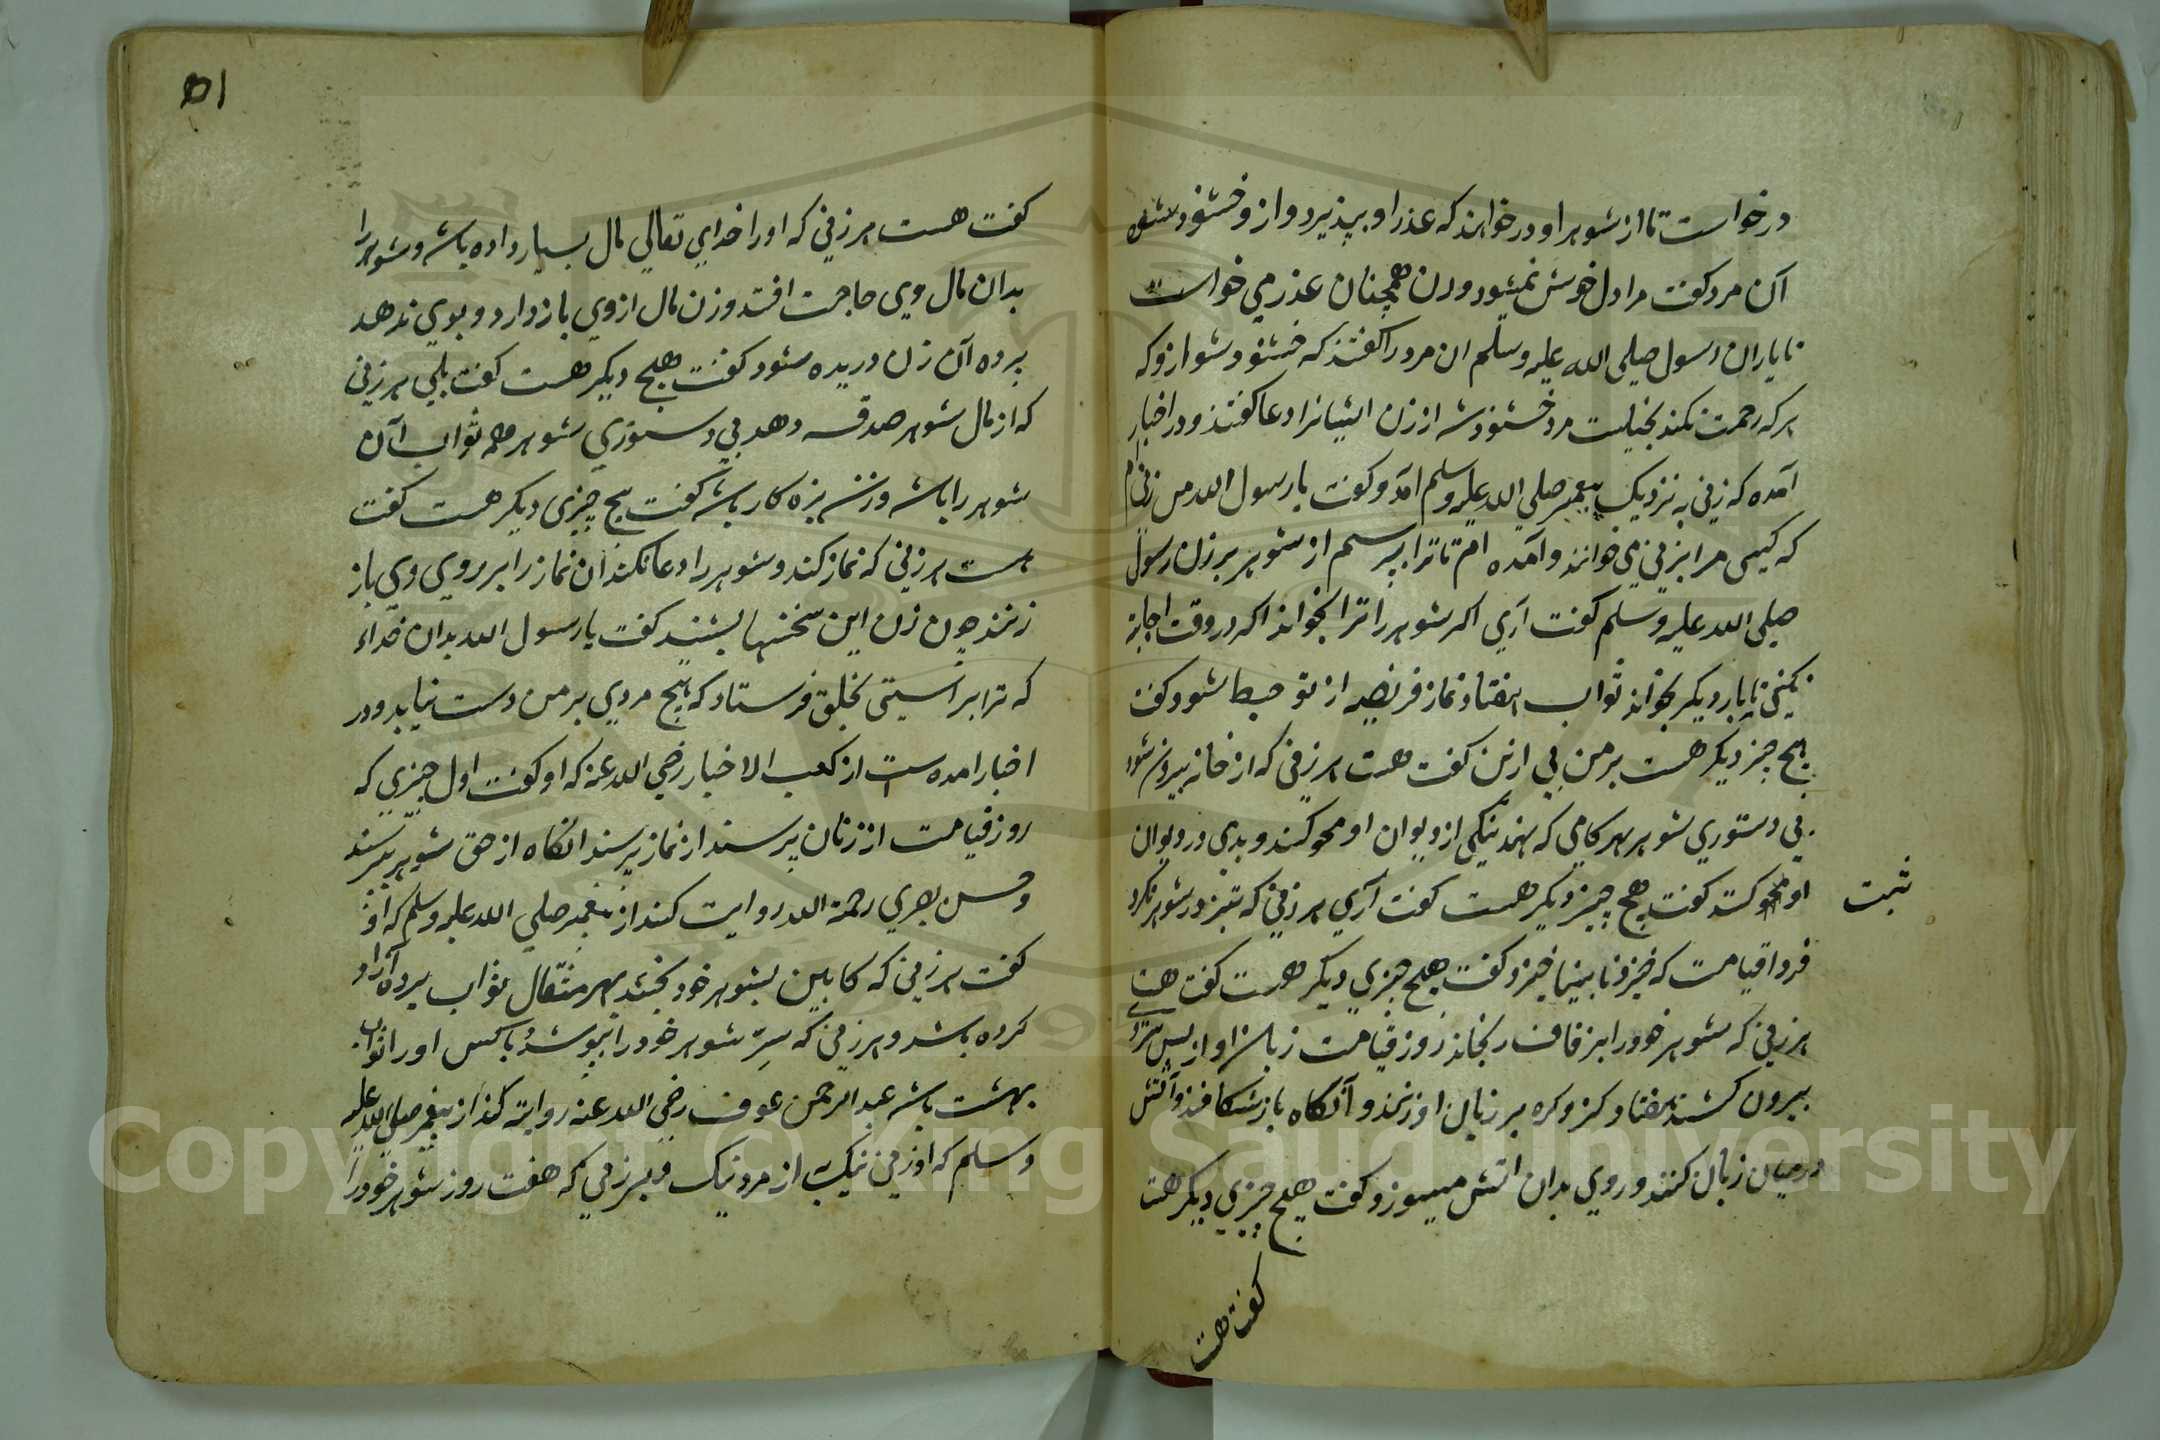 درخواست تا از شوهر او درخواهند که عذر او بپذیرد و ازو خشنود شود
آن مرد کفت مرا دل خوش نمیشود و زن همچنان عذر می خواست
تا یاران رسول صلی الله علیه وسلم ان مرد را کفتند که خشنود شو ازو که
هرکه رحمت نکند مرد خشنود شد از زن ایشانرا دعا کفتند و در اخبار
آمده که زنی به نزدیک پیغمبر صلی الله علیه وسلم آمد و کفت یا رسول الله من زنی ام
که کسی مرا بزنی می خوانند و آمده ام تا ترا بپرسم از شوهر بر زن رسول
صلی الله علیه وسلم کفت آری اکر شوهر ترا بخواند اکر در وقت اجابة
نکنی تا بار دیکر بخواند ثواب هفتاد نماز فریضه از تو حبط شود کفت
هیچ چیز دیکر هست بر من کفت هست هر زنی که از خانه بیرون شود
بی دستوری شوهر بهر کامی که نهد نیکی از دیوان او محو کنند و بدی در دیوان
ثبت
او کنند کفت هیچ چیز دیکر هست کفت آری هر زنی که تیز در شوهر نکرد
فردا قیامت که خیزد نابینا خیزد کفت هیچ چیزی دیکر هست کفت هست
هر زنی که شوهر خود را بزفان رنجاند روز قیامت زبان او از پس سر
بیرون کشند هفتاد کز و کره بر زبان او زنند و آنکاه باز شکافند و آتش
در میان زبان کنند و روی بدان اتش میسوزد کفت هیچ چیزی دیکر هست
کفت هست
۵۱
کفت هست هر زنی که او را خدای تعالی مال بسیار داده باشد و شوهر را
بدان مال وی حاجت افتد و زن مال از وی باز دارد و بوی ندهد
پرده آن زن دریده شود کفت هیچ دیکر هست کفت بلی هر زنی
که از مال شوهر صدقه دهد بی دستوری شوهر همه ثواب آن
شوهر را باشد و زن بزه کار باشد کفت هیچ چیزی دیکر هست کفت
هست هر زنی که نماز کند و شوهر را دعا نکند آن نماز را بر روی وی باز
زنند چون زن این سخنها بشنید کفت یا رسول الله بدان خداء
که ترا براستی بخلق فرستاد که هیچ مردی بر من دست نیابد و در
اخبار امده ست از کعب الاخبار رضی الله عنه که او کفت اول چیزی که
روز قیامت از زنان پرسند از نماز پرسند انکاه از حق شوهر پرسند
و حسن بصری رحمة الله روایت کند از پیغمبر صلی الله علیه وسلم که او
کفت هر زنی که کابین بشوهر خود بخشد بهر مثقال ثواب برده آزاد
کرده باشد و هر زنی که سرّ شوهر خود را بپوشد او را ثواب
بهشت باشد عبد الرحمن عوف رضی الله عنه روایة کند از پیغمبر صلی الله علیه
وسلم که او زنی نیک به از مرد نیک و هر زنی که هفت روز شوهر خود را